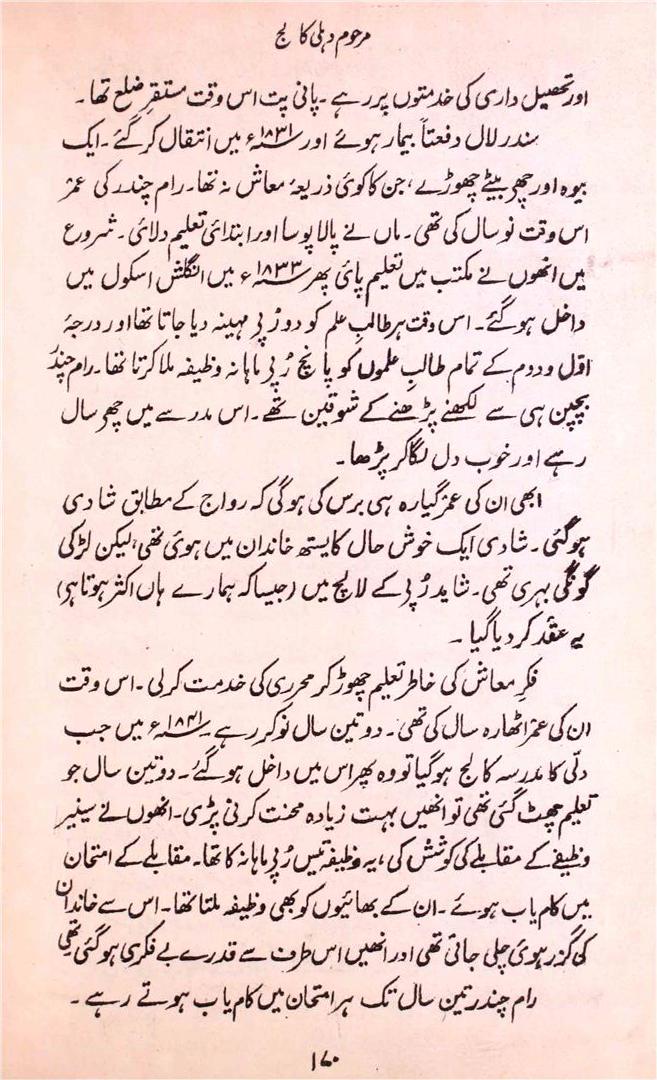 مرحوم دہلی کالج
اور تحصیل داری کی خدمتوں پر رہے ۔ پانی پت اس وقت مستقرِ ضلع تھا ۔
سندر لال دفعتاً بیمار ہوئے اور ۱۸۳۱ء میں انتقال کر گئے ۔ ایک
بیوہ اور چھ بیٹے چھوڑے، جن کا کوئی ذریعۂ معاش نہ تھا۔ رام چندر کی عمر
اس وقت نو سال کی تھی۔ ماں نے پالا پوسا اور ابتدائی تعلیم دلائی۔ شروع
میں انھوں نے مکتب میں تعلیم پائی پھر ۱۸۳۳ء میں انگلش اسکول میں
داخل ہو گئے۔ اس وقت ہر طالبِ علم کو دو رُپی مہینہ دیا جاتا تھا اور درجۂ
اوّل و دوم کے تمام طالبِ علموں کو پانچ رُپی ماہانہ وظیفہ ملا کرتا تھا۔ رام چندر
بچپن ہی سے لکھنے پڑھنے کے شوقین تھے۔ اس مدرسے میں چھ سال
رہے اور خوب دل لگا کر پڑھا۔
ابھی ان کی عمر گیارہ ہی برس کی ہوگی کہ رواج کے مطابق شادی
ہوگئی۔ شادی ایک خوش حال کایستھ خاندان میں ہوئی تھی، لیکن لڑکی
گونگی بہری تھی۔ شاید رُپی کے لالچ میں (جیسا کہ ہمارے ہاں اکثر ہوتا ہی)
یہ عقد کر دیا گیا ۔
فکرِ معاش کی خاطر تعلیم چھوڑ کر محرری کی خدمت کرلی۔ اس وقت
ان کی عمر اٹھارہ سال کی تھی۔ دو تین سال نوکر رہے ۔ ۱۸۴۱ء میں جب
دلّی کا مدرسہ کالج ہوگیا تو وہ پھر اس میں داخل ہو گئے۔ دو تین سال جو
تعلیم چھٹ گئی تھی تو انھیں بہت زیادہ محنت کرنی پڑی۔ انھوں نے سینیر
وظیفے کے مقابلے کی کوشش کی، یہ وظیفہ تیس رُپی ماہانہ کا تھا۔ مقابلے کے امتحان
میں کام یاب ہوئے ۔ ان کے بھائیوں کو بھی وظیفہ ملتا تھا۔ اس سے خاندان
کی گزر ہوئی چلی جاتی تھی اور انھیں اس طرف سے قدرے بے فکری ہوگئی تھی
رام چندر تین سال تک ہر امتحان میں کام یاب ہوتے رہے ۔
۱۷۰